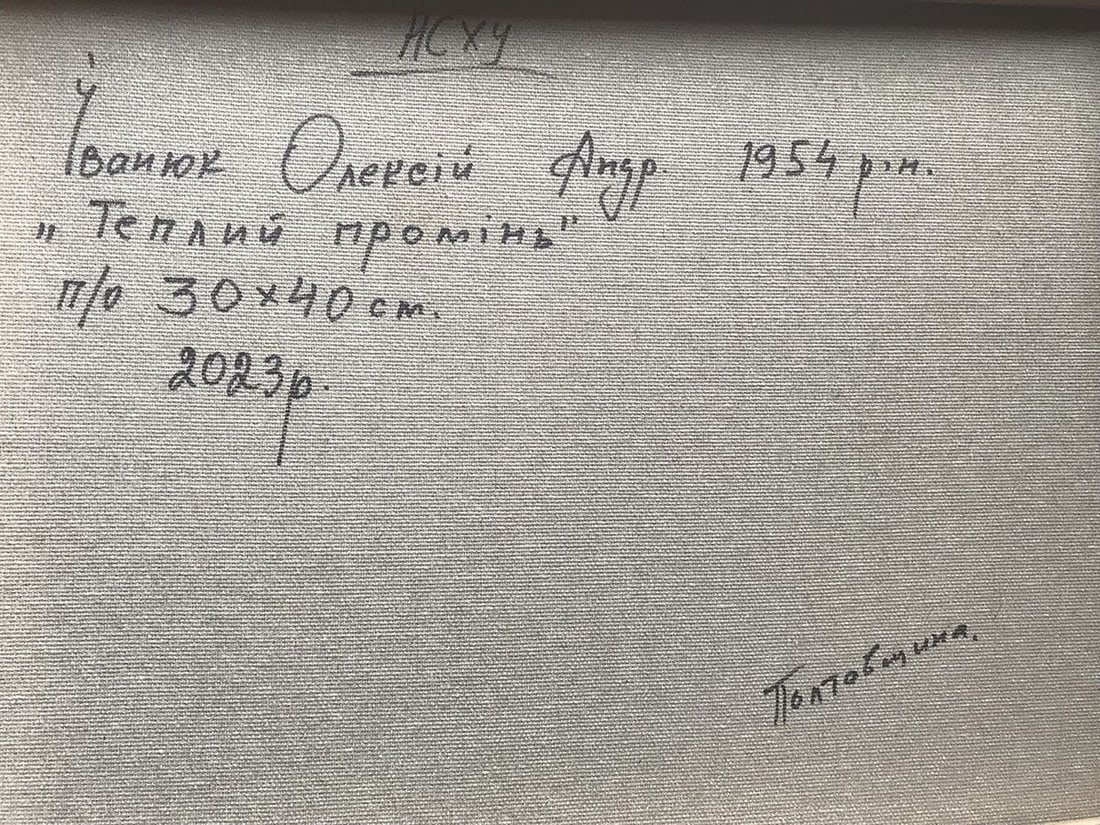 НСХУ
Іванюк Олексій Андр. 1954 р.н.
„Теплий промінь"
п/о 30×40 см.
2023р.
Полтавщина.